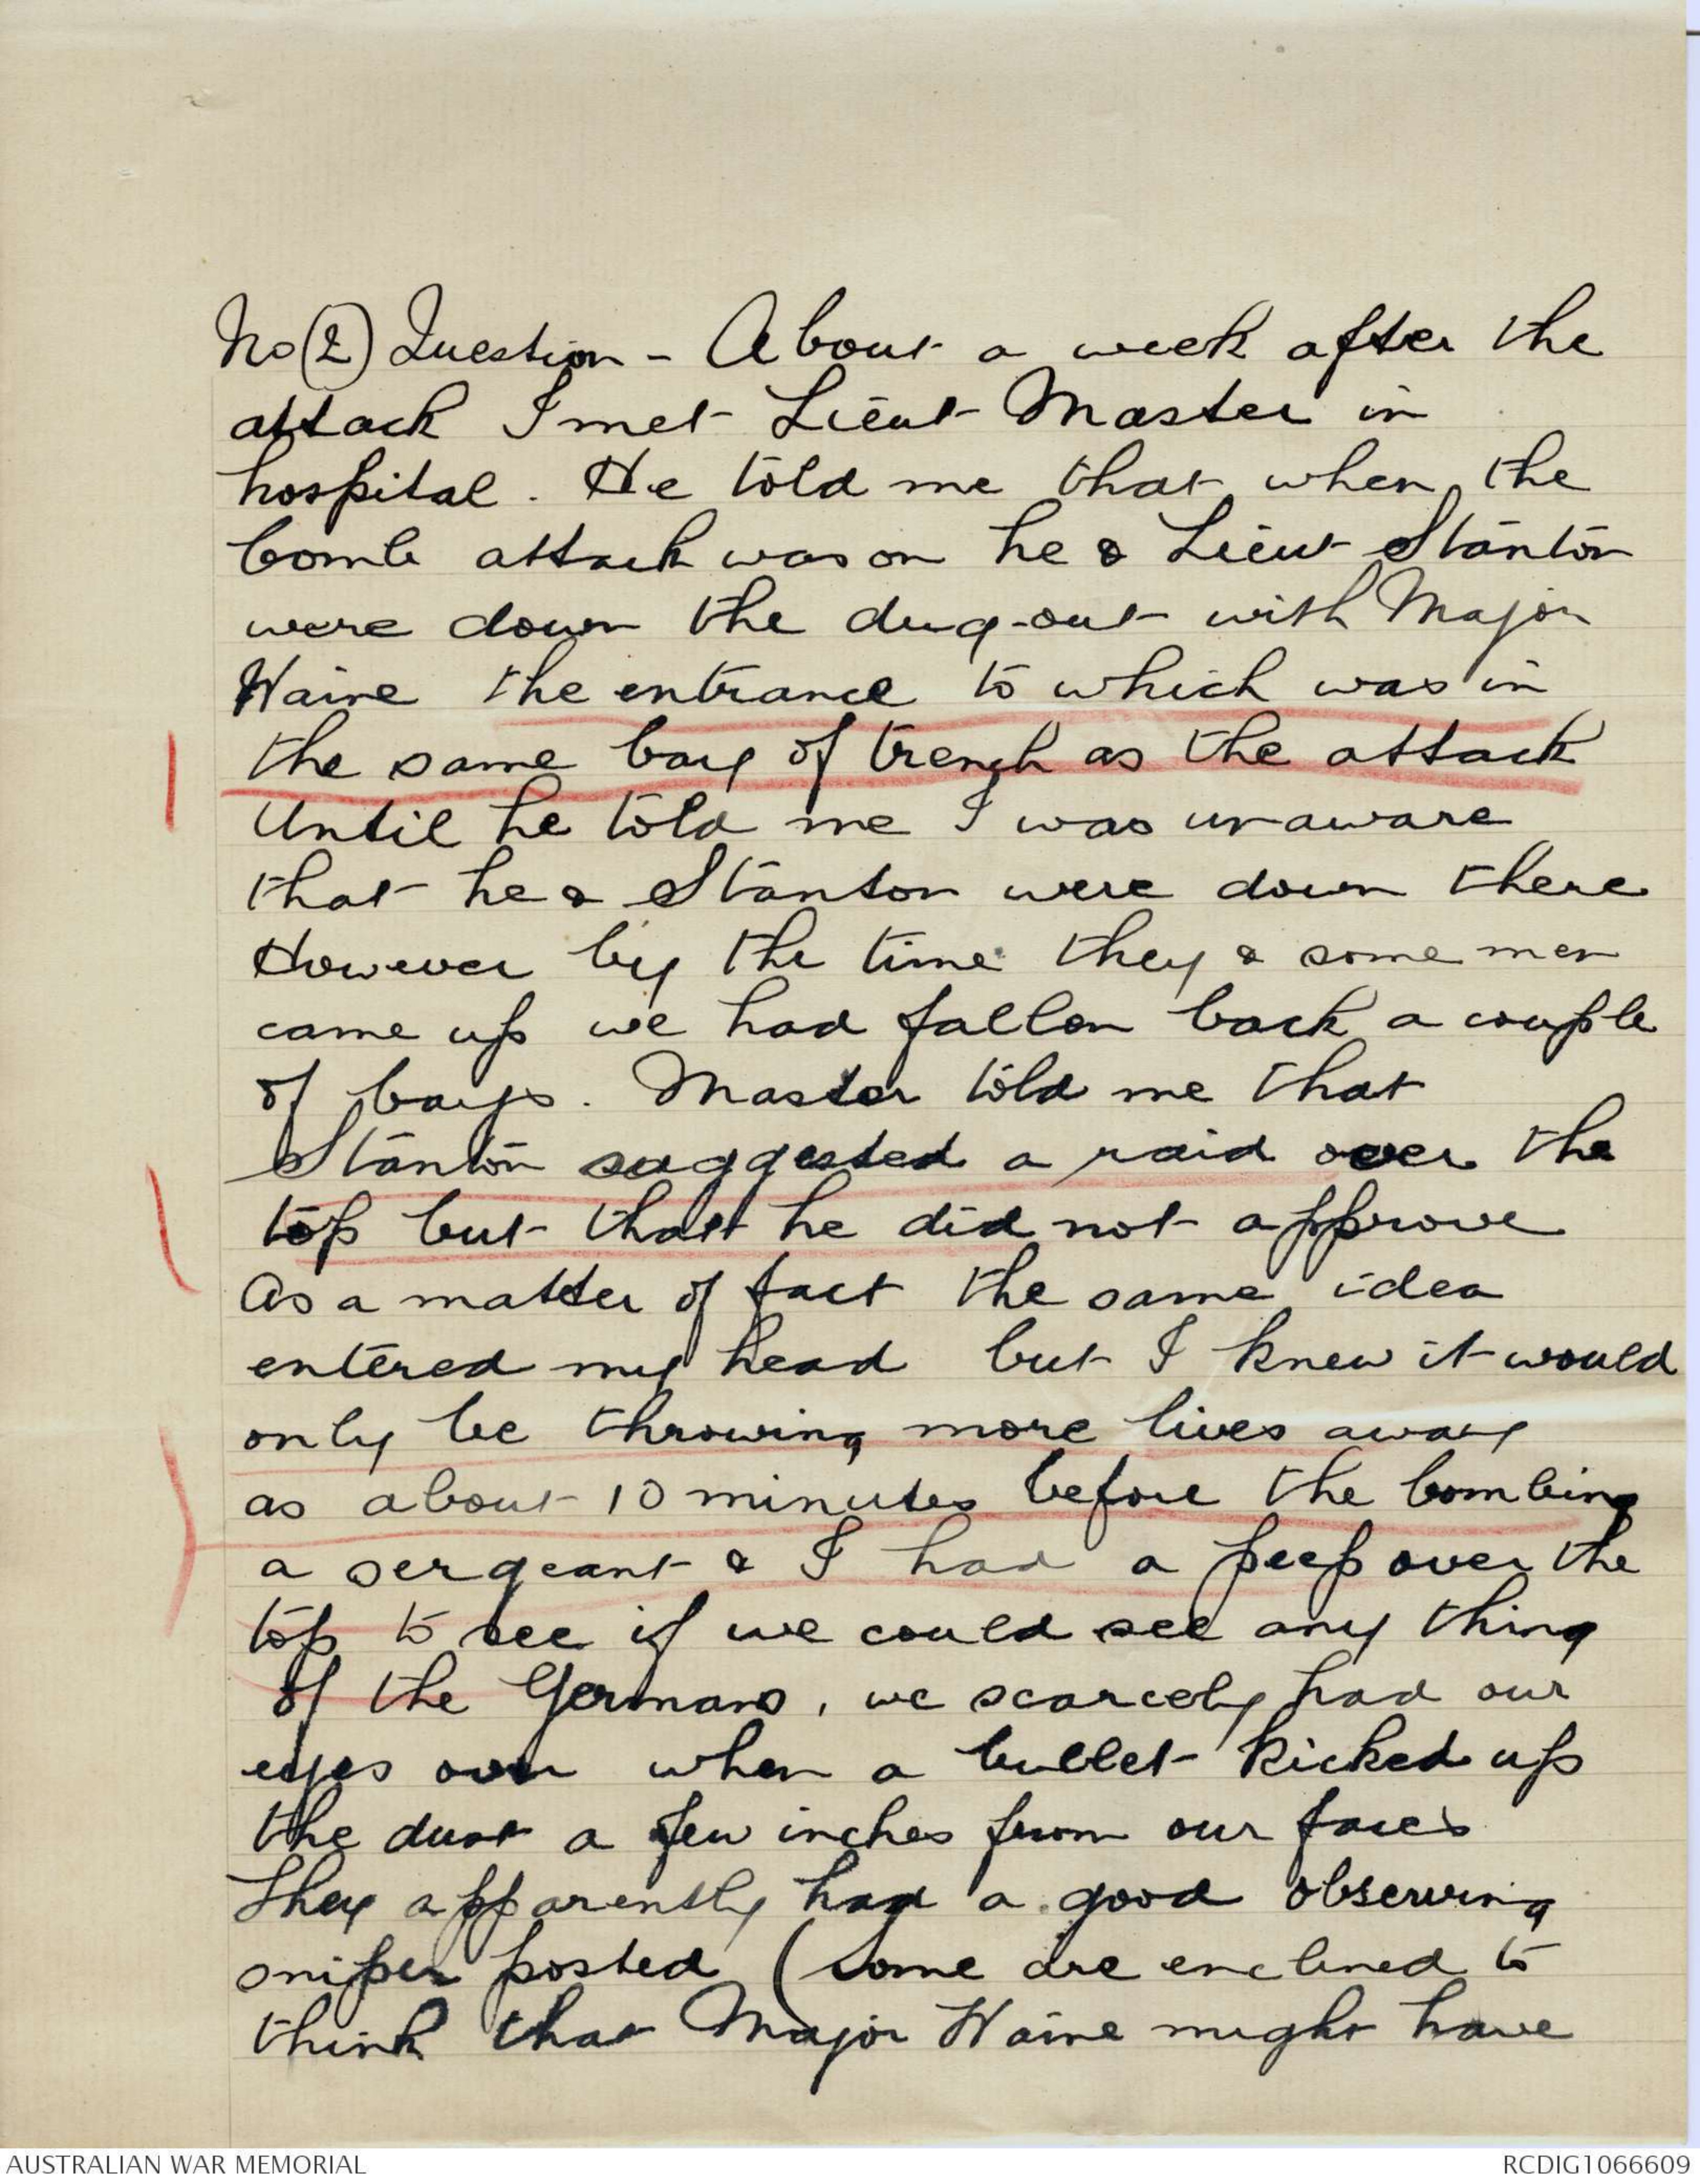 No (2) Question - About a week after the
attack I met Lieut Master in
hospital. He told me that when the
bomb attack was on he & Lieut Stanton
were down the dug-out with Major
Waine the entrance to which was in
the same bay of trench as the attack
Until he told me I was unaware
that he & Stanton were down there
However by the time they & some men
came up we had fallen back a couple
of bays. Master told me that
Stanton suggested a raid over the
top but that he did not approve
As a matter of fact the same idea
entered my head but I knew it would
only be throwing more lives away
as about 10 minutes before the bombing
a sergeant & I had a peep over the
top to see if we could see any thing
of the Germans, we scarcely had our
eyes over when a bullet kicked up
the dust a few inches from our faces
They apparently had a good observing
sniper posted (some are enclined to
think that Major Waine might have
AUSTRALIAN WAR MEMORIAL
RCDIG1066609